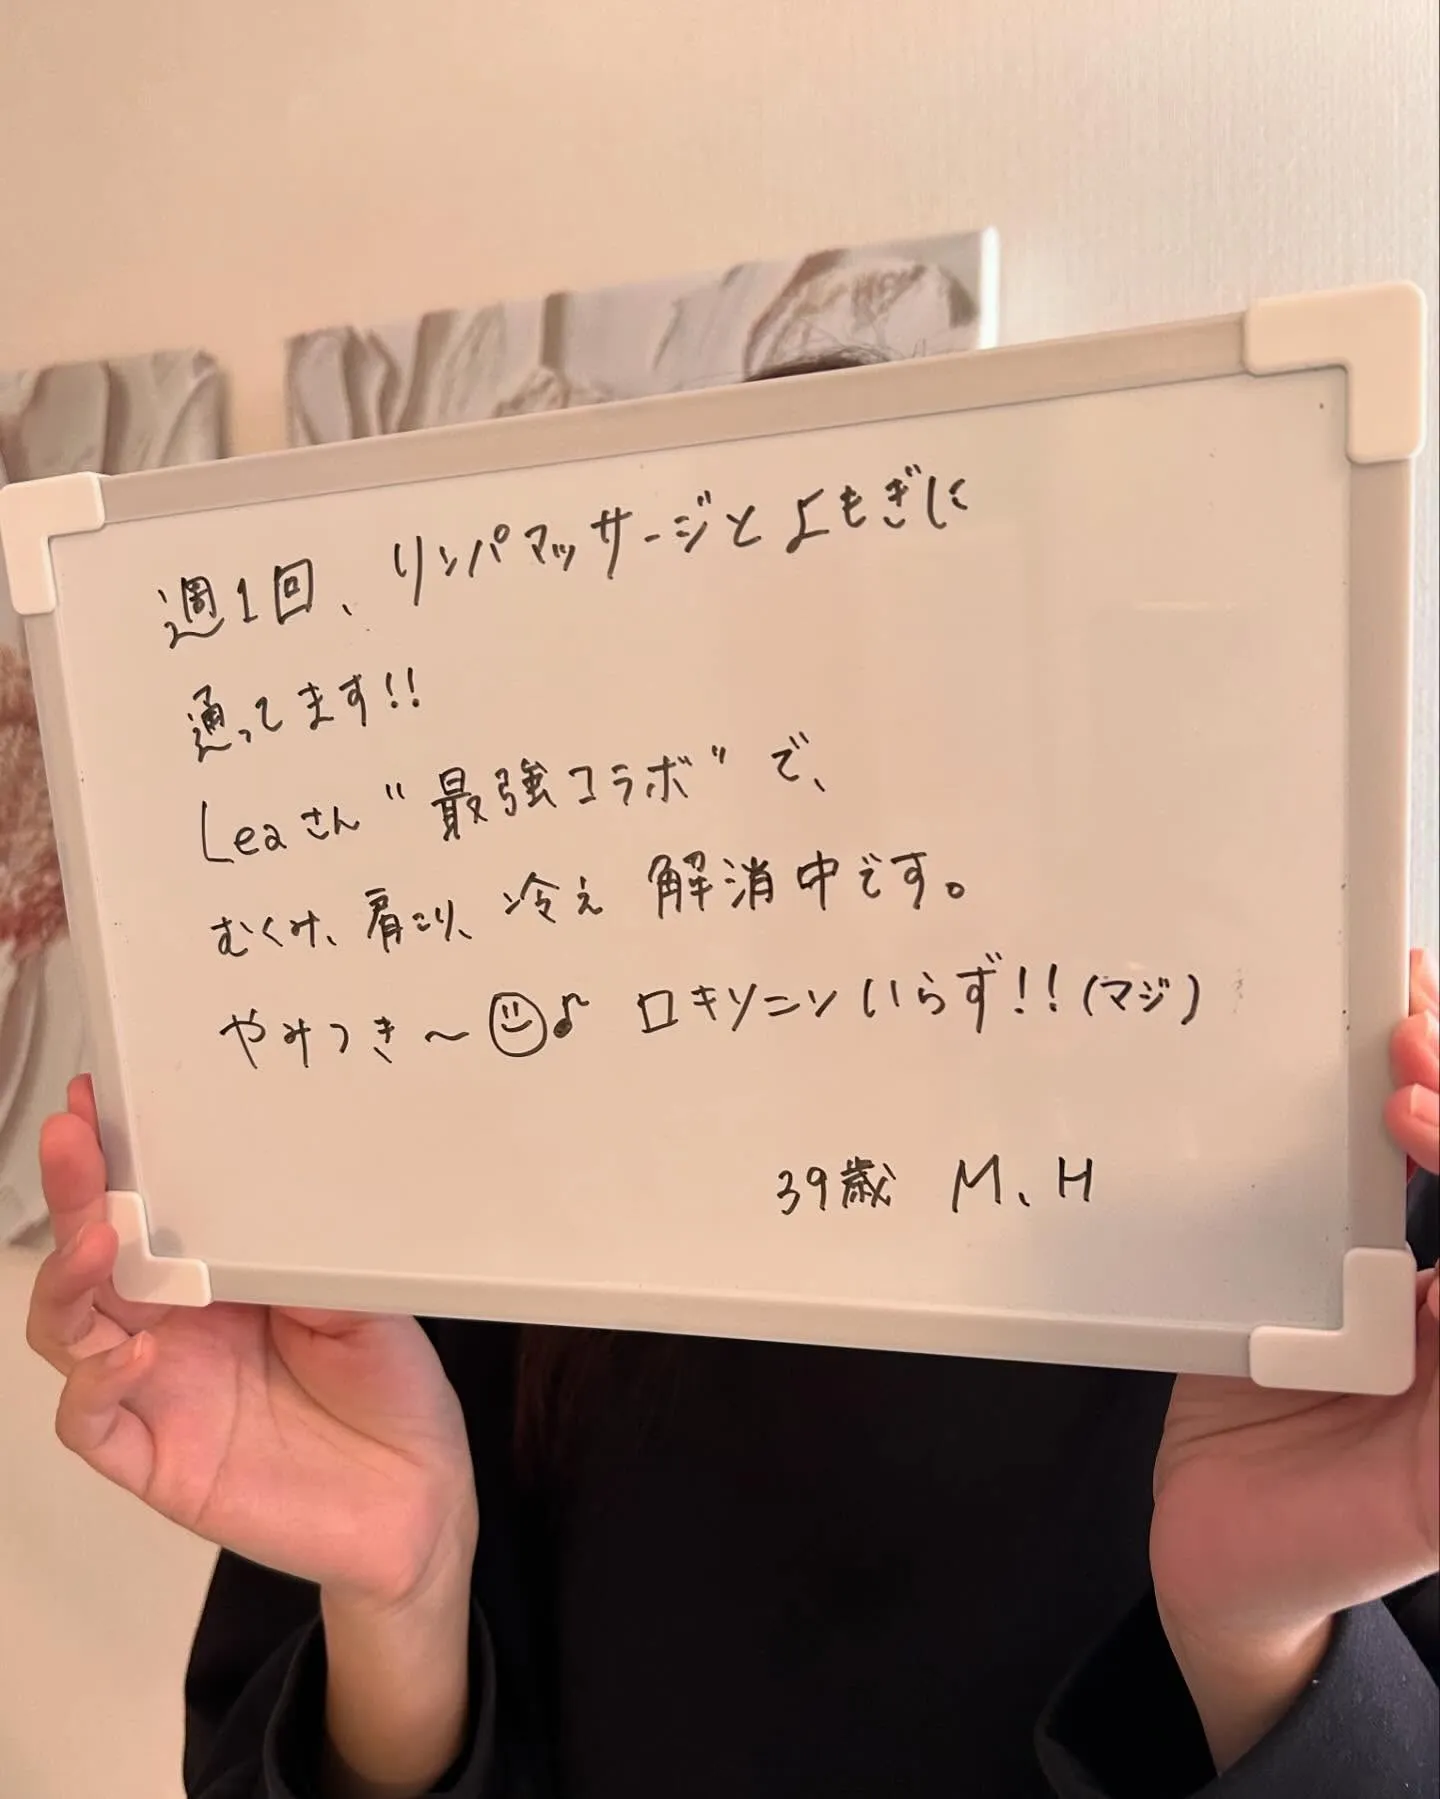 週1回、リンパマッサージとよもぎに
通ってます!!
Leaさん"最強コラボ"で、
むくみ、肩こり、冷え 解消中です。
やみつき〜☺♪ ロキソニンいらず!!(マジ)
39歳 M、H